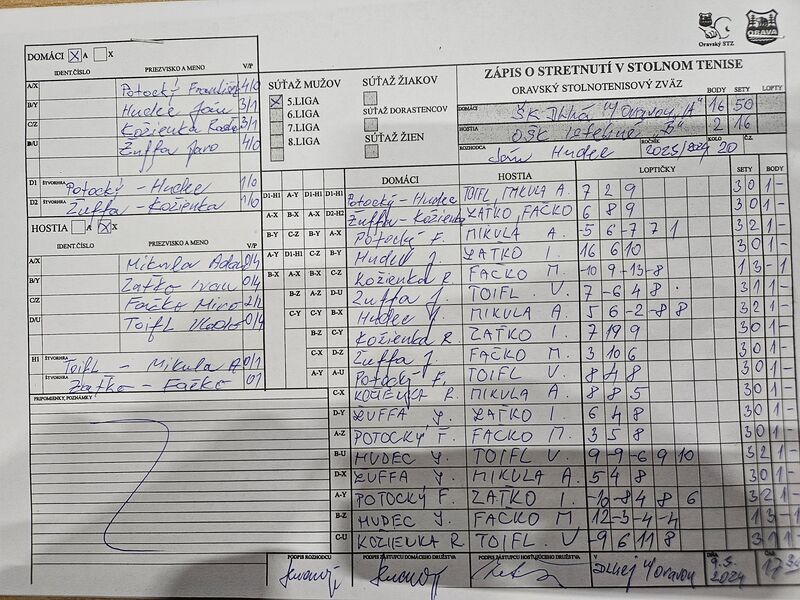 Oravský STZ
ORAVA
ZÁPIS O STRETNUTÍ V STOLNOM TENISE
ORAVSKÝ STOLNOTENISOVÝ ZVÄZ
BODY SETY LOPTY
DOMÁCI ŠK Dlhá n/Oravou "A" 16 50
HOSTIA OŠK "B" 2 16
ROZHODCA Ján Hudec ROČNÍK 2023/2024 KOLO 20 Č.Z.
DOMÁCI X A X
IDENT.ČÍSLO PRIEZVISKO A MENO V/P
A/X Potocký František 4/0
B/Y Hudec Ján 3/1
C/Z Kožienka 3/1
B/U Žuffa Jaro 4/0
D1 ŠTVORHRA Potocký - Hudec 1/0
D2 Žuffa - Kožienka 1/0
HOSTIA A X X
IDENT.ČÍSLO PRIEZVISKO A MENO V/P
A/X Mikula Adam 0/4
B/Y Zaťko Ivan 0/4
C/Z Fačko Miro 2/2
D/U Toifl Vlado 0/4
H1 ŠTVORHRA Toifl - Mikula A 0/1
ŠTVORHRA Zaťko - Fačko 0/1
PRIPOMIENKY, POZNÁMKY
SÚŤAŽ MUŽOV
X 5.LIGA
6.LIGA
7.LIGA
8.LIGA
SÚŤAŽ ŽIAKOV
SÚŤAŽ DORASTENCOV
SÚŤAŽ ŽIEN
DOMÁCI HOSTIA LOPTIČKY SETY BODY
D1-H1 A-Y D1-H1 D1-H1 Potocký - Hudec TOIFL, MIKULA A. 7 2 9 3 0 1 -
A-X B-X A-X D2-H2 Žuffa - Kožienka ZAŤKO, FAČKO 6 8 9 3 0 1 -
B-Y C-Z B-Y A-X Potocký F. MIKULA A. -5 6 -7 7 1 3 2 1 -
A-Y D1-H1 C-Z B-Y Hudec J. ZAŤKO I. 16 6 10 3 0 1 -
B-X A-X B-X C-Z Kožienka R. FAČKO M. -10 9 -13 -8 1 3 - 1
B-Z A-Z D-U Žuffa J. TOIFL V. 7 -6 4 8 3 1 1 -
C-Y C-Y B-X Hudec J. MIKULA A. 5 6 -2 -8 8 3 2 1 -
B-Z C-Y Kožienka R. ZAŤKO I. 7 19 9 3 0 1 -
C-X D-Z Žuffa J. FAČKO M. 3 10 6 3 0 1 -
A-Y A-U Potocký F. TOIFL V. 8 4 8 3 0 1 -
C-X KOŽIENKA R. MIKULA A. 8 8 5 3 0 1 -
D-Y ŽUFFA J. ZAŤKO I. 6 4 8 3 0 1 -
A-Z POTOCKÝ F. FAČKO M. 3 5 8 3 0 1 -
B-U HUDEC J. TOIFL V. 9 -9 -6 9 10 3 2 1 -
D-X ŽUFFA J. MIKULA A. 5 4 8 3 0 1 -
A-Y POTOCKÝ F. ZAŤKO I. -10 -8 4 8 6 3 2 1 -
B-Z HUDEC J. FAČKO M. 12 -3 -4 -4 1 3 - 1
C-U KOŽIENKA R. TOIFL V. -9 6 11 8 3 1 1 -
PODPIS ROZHODCU PODPIS ZÁSTUPCU DOMÁCEHO DRUŽSTVA PODPIS ZÁSTUPCU HOSŤUJÚCEHO DRUŽSTVA V Dlhej n/Oravou DŇA 9.5. 2024 ČAS